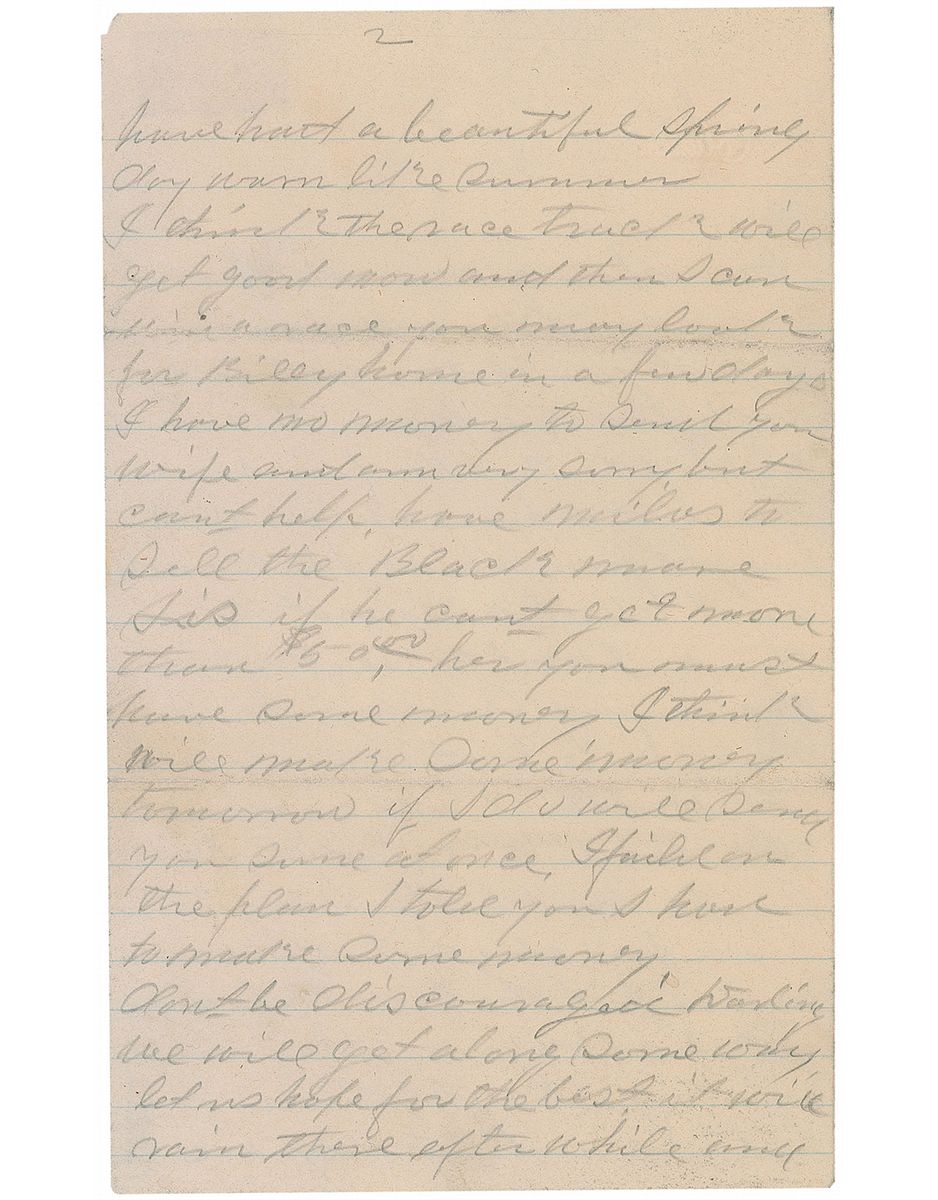 2
have had a beautiful spring
day warm like summer
I think the race track will
get good now and then I can
win a race you may look
for Billy home in a few days
I have no money to send you
wife and am very sorry but
cant help, have Milus to
Sell the Black mare
Sis if he cant get more
than $50,00 her you must
have some money I think
will make some money
tomorrow if I do will send
you some at once, I faild on
the plan I told you I had
to make some money
dont be discouraged Darling
we will get along some way
let us hope for the best it will
rain there after while and